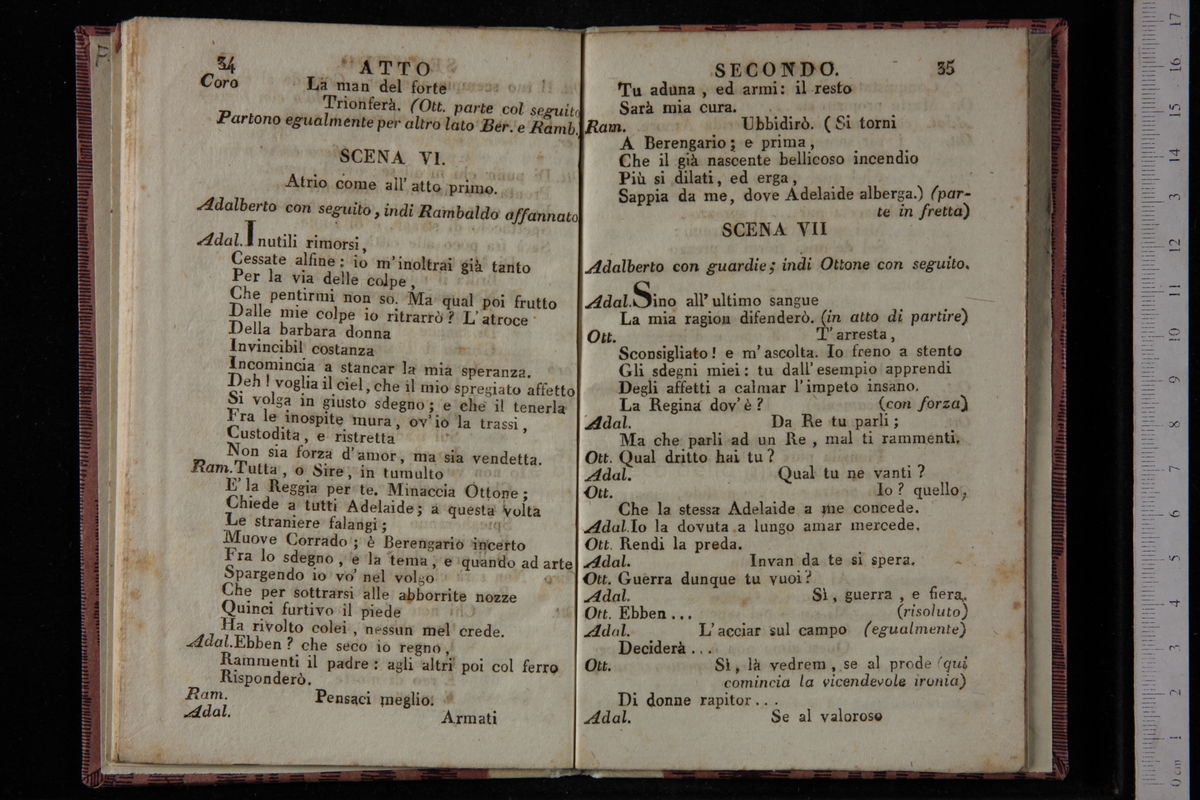 34
ATTO
Coro La man del forte
Trionferà. (Ott. parte col seguito
Partono egualmente per altro lato Ber. e Ramb.)
SCENA VI.
Atrio come all' atto primo.
Adalberto con seguito, indi Rambaldo affannato
Adal. Inutili rimorsi,
Cessate alfine: io m'inoltrai già tanto
Per la via delle colpe,
Che pentirmi non so. Ma qual poi frutto
Dalle mie colpe io ritrarrò? L'atroce
Della barbara donna
Invincibil costanza
Incomincia a stancar la mia speranza.
Deh! voglia il ciel, che il mio spregiato affetto
Si volga in giusto sdegno; e che il tenerla
Fra le inospite mura, ov'io la trassi,
Custodita, e ristretta
Non sia forza d'amor, ma sia vendetta.
Ram. Tutta, o Sire, in tumulto
E' la Reggia per te. Minaccia Ottone;
Chiede a tutti Adelaide; a questa volta
Le straniere falangi;
Muove Corrado; è Berengario incerto
Fra lo sdegno, e la tema, e quando ad arte
Spargendo io vo' nel volgo
Che per sottrarsi alle abborrite nozze
Quinci furtivo il piede
Ha rivolto colei, nessun mel crede.
Adal. Ebben? che seco io regno,
Rammenti il padre: agli altri poi col ferro
Risponderò.
Ram. Pensaci meglio.
Adal. Armati
SECONDO. 35
Tu aduna, ed armi: il resto
Sarà mia cura.
Ram. Ubbidirò. (Si torni
A Berengario; e prima,
Che il già nascente bellicoso incendio
Più si dilati, ed erga,
Sappia da me, dove Adelaide alberga.) (par-
te in fretta)
SCENA VII
Adalberto con guardie; indi Ottone con seguito.
Adal. Sino all' ultimo sangue
La mia ragion difenderò. (in atto di partire)
Ott. T'arresta,
Sconsigliato! e m'ascolta. Io freno a stento
Gli sdegni miei: tu dall'esempio apprendi
Degli affetti a calmar l'impeto insano.
La Regina dov'è? (con forza)
Adal. Da Re tu parli;
Ma che parli ad un Re, mal ti rammenti.
Ott. Qual dritto hai tu?
Adal. Qual tu ne vanti?
Ott. Io? quello,
Che la stessa Adelaide a me concede.
Adal. Io la dovuta a lungo amar mercede.
Ott. Rendi la preda.
Adal. Invan da te si spera.
Ott. Guerra dunque tu vuoi?
Adal. Sì, guerra, e fiera.
Ott. Ebben... (risoluto)
Adal. L'acciar sul campo (egualmente)
Deciderà...
Ott. Sì, là vedrem, se al prode (qui
comincia la vicendevole ironia)
Di donne rapitor...
Adal. Se al valoroso
0 cm 1 2 3 4 5 6 7 8 9 10 11 12 13 14 15 16 17